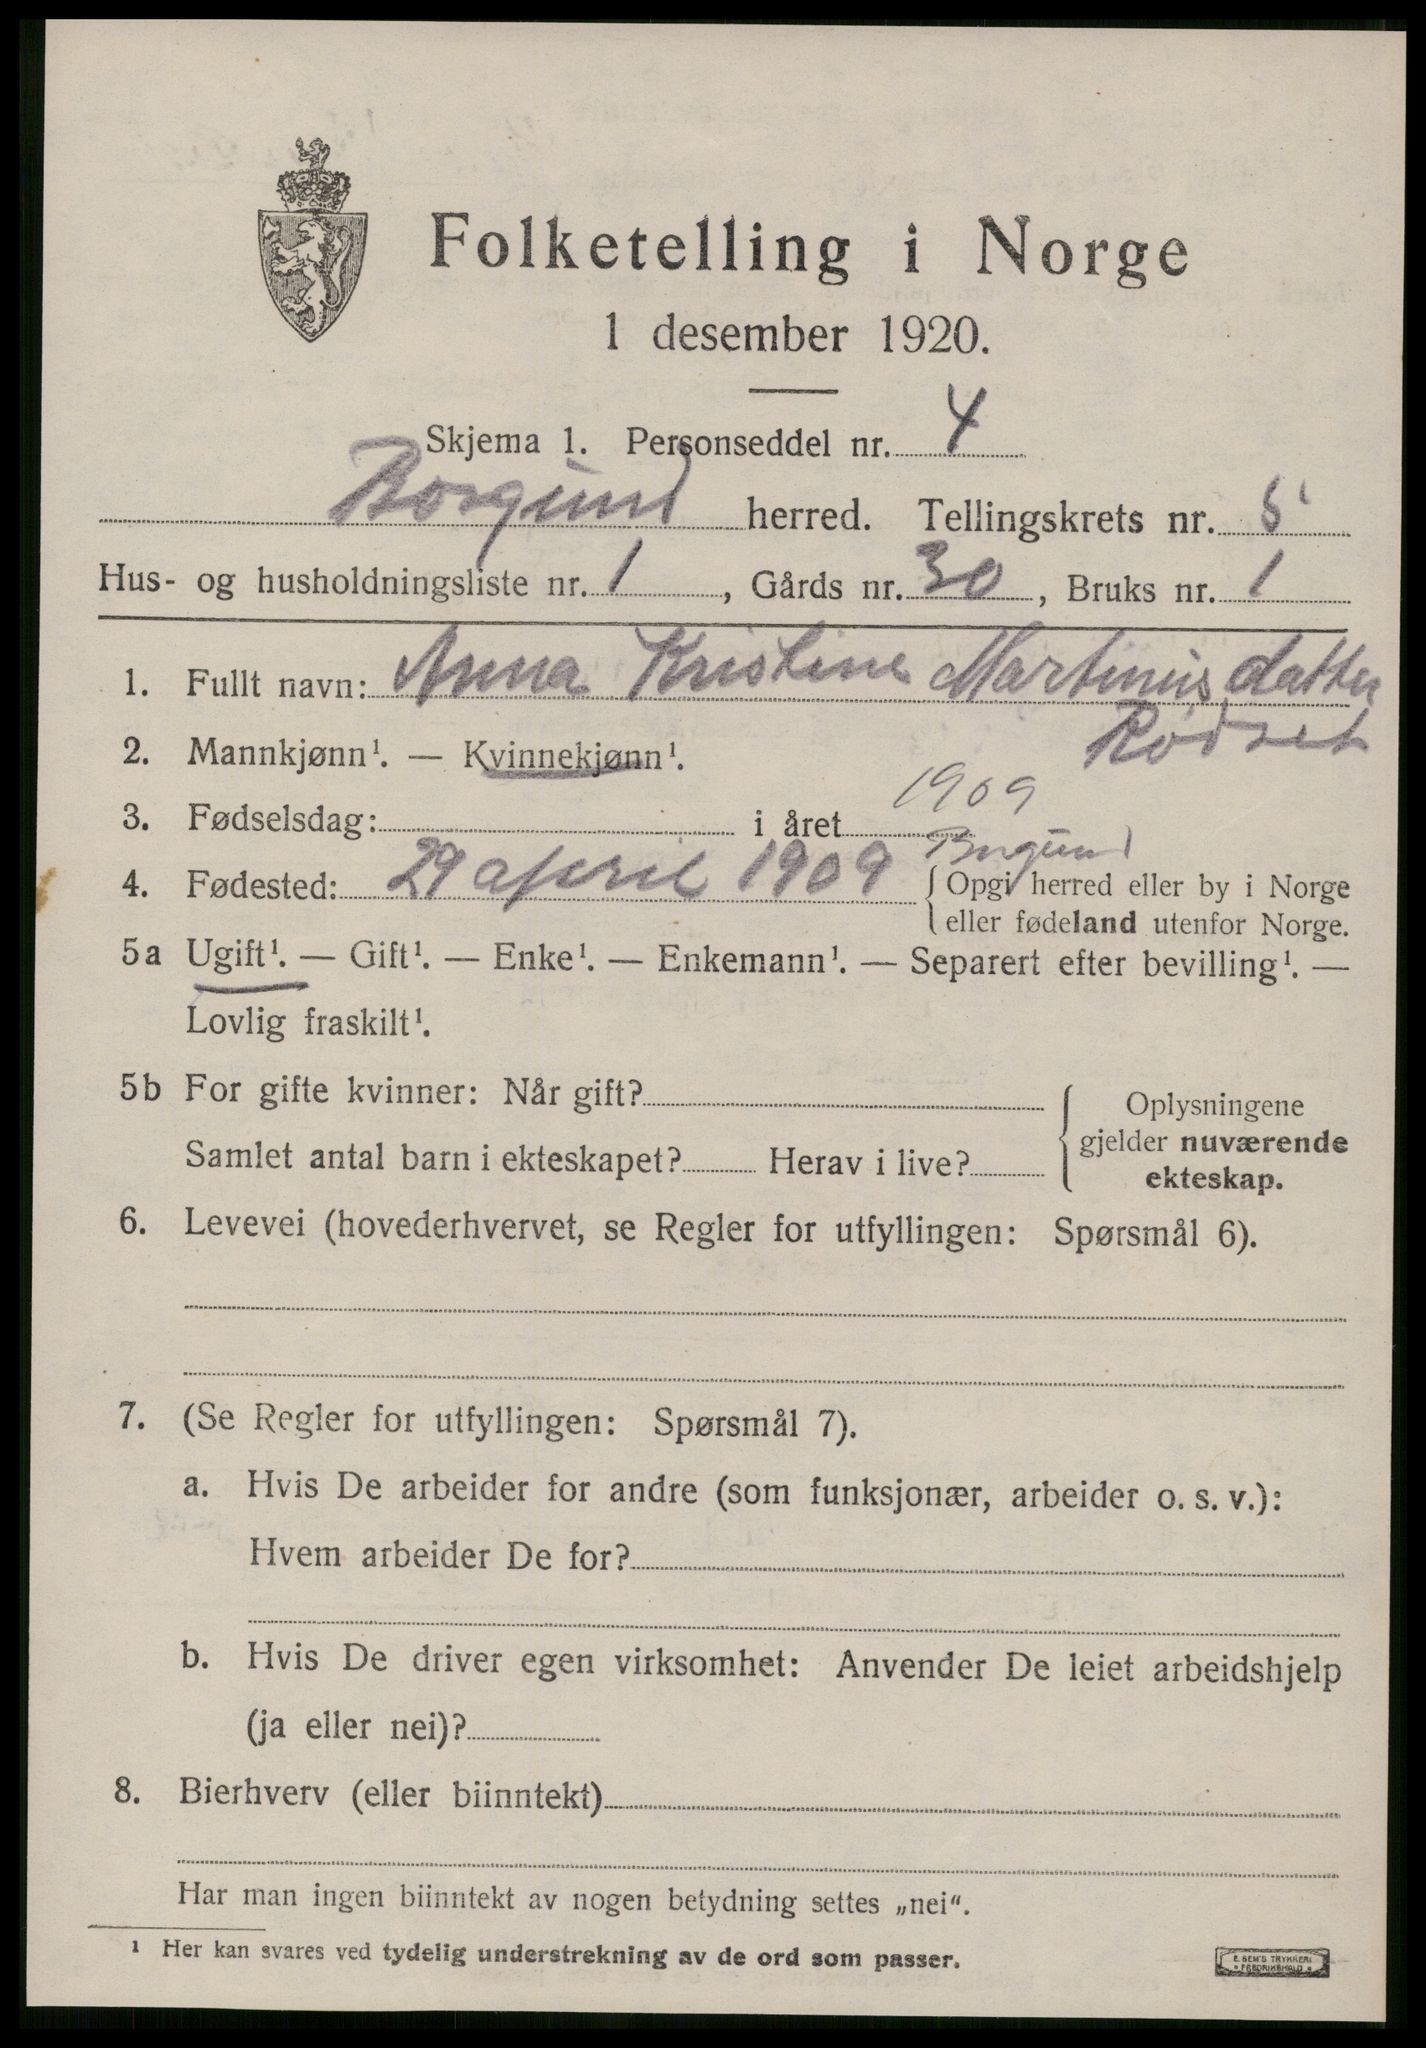 Folketelling i Norge
1 desember 1920.
Skjema 1. Personseddel nr. 4
Borgund herred. Tellingskrets nr. 5
Hus- og husholdningsliste nr. 1, Gårds nr. 30, Bruks nr. 1
1. Fullt navn: Anna Kristine Martinusdatter
Rødset
2. Mannkjønn¹. — Kvinnekjønn¹.
3. Fødselsdag: i året 1909
Borgund
4. Fødested: 29 april 1909 {Opgi herred eller by i Norge
eller fødeland utenfor Norge.
5a Ugift¹. — Gift¹. — Enke¹. — Enkemann¹. — Separert efter bevilling¹. —
Lovlig fraskilt¹.
5b For gifte kvinner: Når gift?
Samlet antal barn i ekteskapet? Herav i live?
Oplysningene
gjelder nuværende
ekteskap.
6. Levevei (hovederhvervet, se Regler for utfyllingen: Spørsmål 6).
7. (Se Regler for utfyllingen: Spørsmål 7).
a. Hvis De arbeider for andre (som funksjonær, arbeider o. s. v.):
Hvem arbeider De for?
b. Hvis De driver egen virksomhet: Anvender De leiet arbeidshjelp
(ja eller nei)?
8. Bierhverv (eller biinntekt)
Har man ingen biinntekt av nogen betydning settes „nei“.
¹ Her kan svares ved tydelig understrekning av de ord som passer.
E. SEM'S TRYKKERI
FREDRIKSHALD